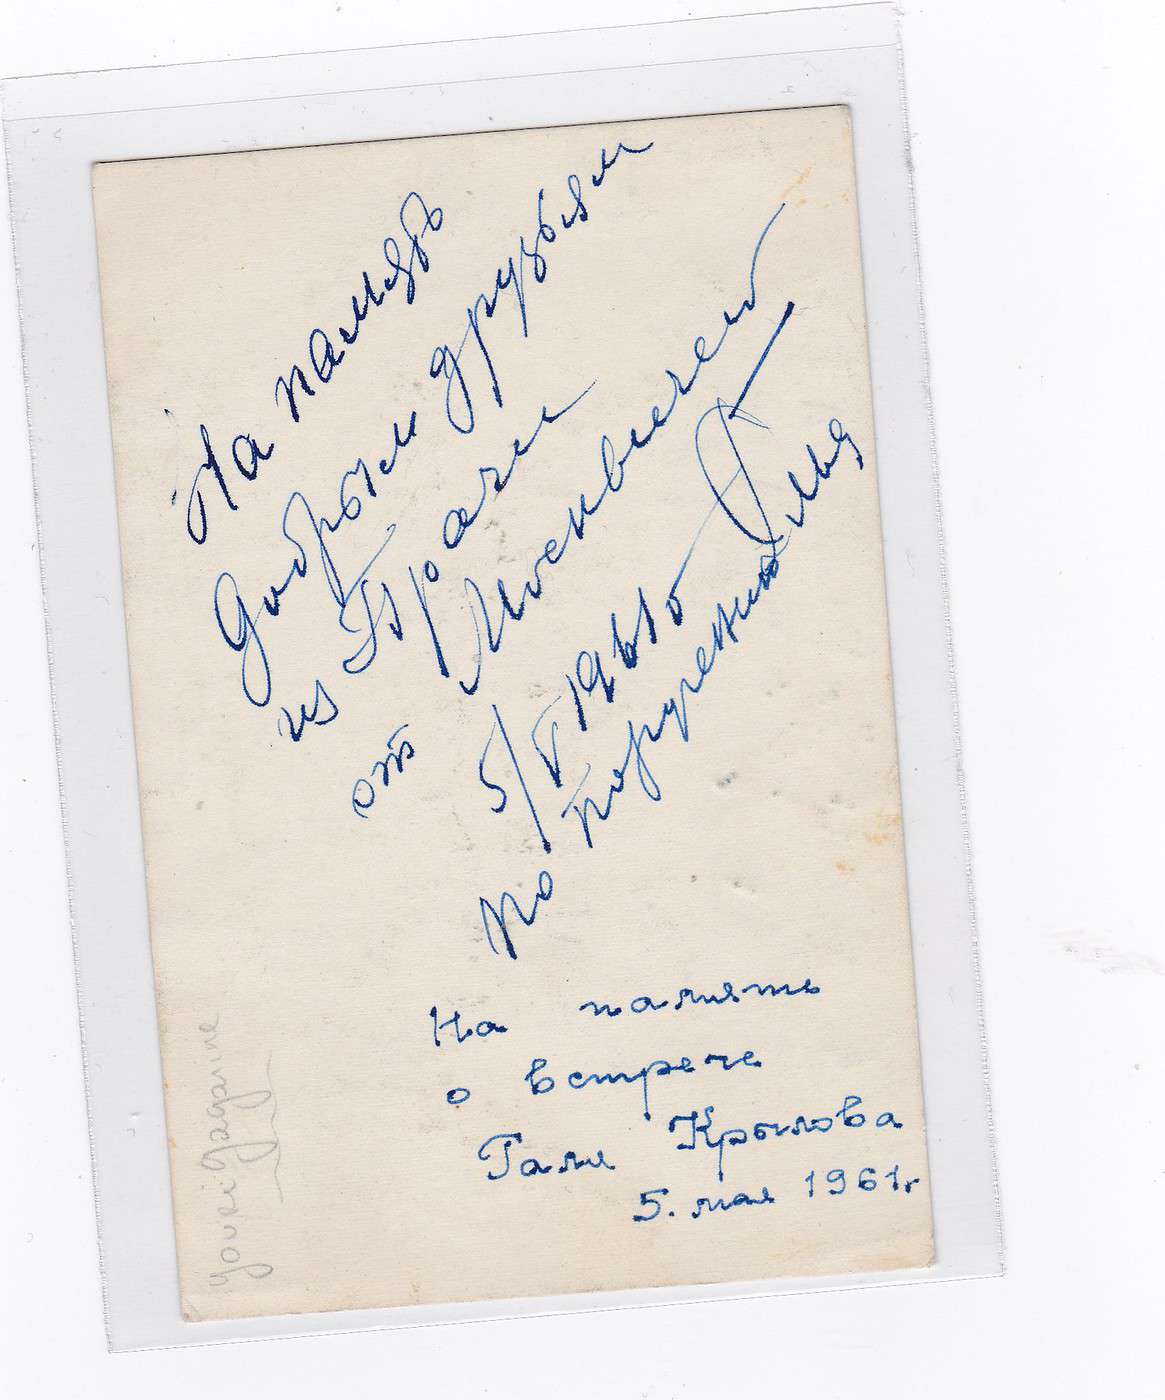 На память
Добрым друзьям
из Праги
от Москвичей
5/V 1961
По поручению
На память
о встрече
Галя Крылова
5. мая 1961г
youri gagarine